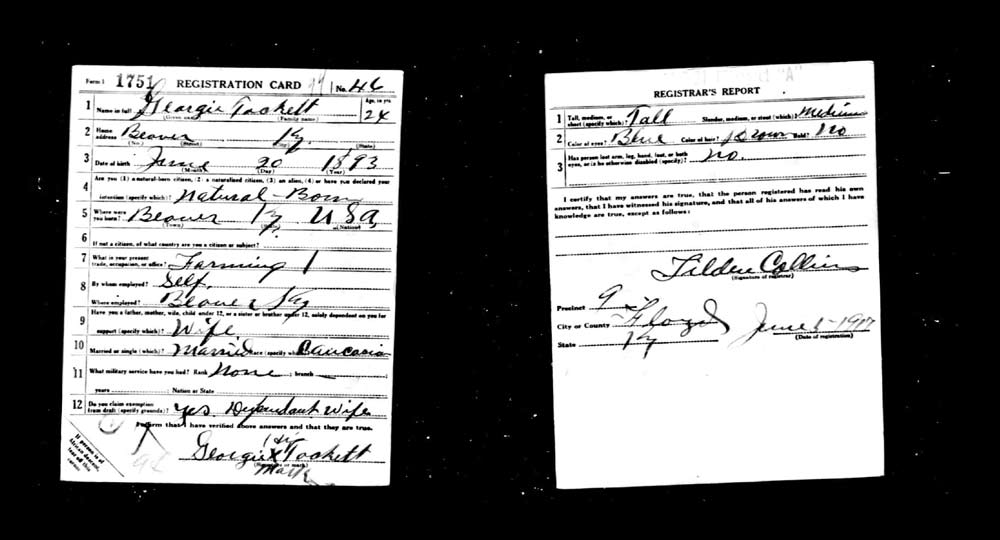 Form 1 1751 REGISTRATION CARD No. 46
1 Name in full Georgie Tackett Age, in yrs. 24
(Given name) (Family name)
2 Home address Beaver Ky
(No.) (Street) (City) (State)
3 Date of birth June 20 1893
(Month) (Day) (Year)
4 Are you (1) a natural-born citizen, (2) a naturalized citizen, (3) an alien, (4) or have you declared your
intention (specify which)? Natural-Born
5 Where were you born? Beaver Ky. USA
(Town) (State) (Nation)
6 If not a citizen, of what country are you a citizen or subject?
7 What is your present trade, occupation, or office? Farming
8 By whom employed? Self.
Where employed? Beaver Ky
9 Have you a father, mother, wife, child under 12, or a sister or brother under 12, solely dependent on you for
support (specify which)? Wife
10 Married or single (which)? Married Race (specify which)? Caucasian
11 What military service have you had? Rank None ; branch
years ; Nation or State
12 Do you claim exemption from draft (specify grounds)? Yes. Dependant Wife
I affirm that I have verified above answers and that they are true.
his
Georgie X Tackett
(Signature or mark)
Mark
If person is of
African descent,
tear off this
corner.
REGISTRAR'S REPORT
1 Tall, medium, or short (specify which)? Tall Slender, medium, or stout (which)? Medium
2 Color of eyes? Blue Color of hair? Brown Bald? No
3 Has person lost arm, leg, hand, foot, or both eyes, or is he otherwise disabled (specify)? No.
I certify that my answers are true, that the person registered has read his own
answers, that I have witnessed his signature, and that all of his answers of which I have
knowledge are true, except as follows:
Tilden Collins
(Signature of registrar)
Precinct 9
City or County Floyd
State Ky
June 5-1917
(Date of registration)